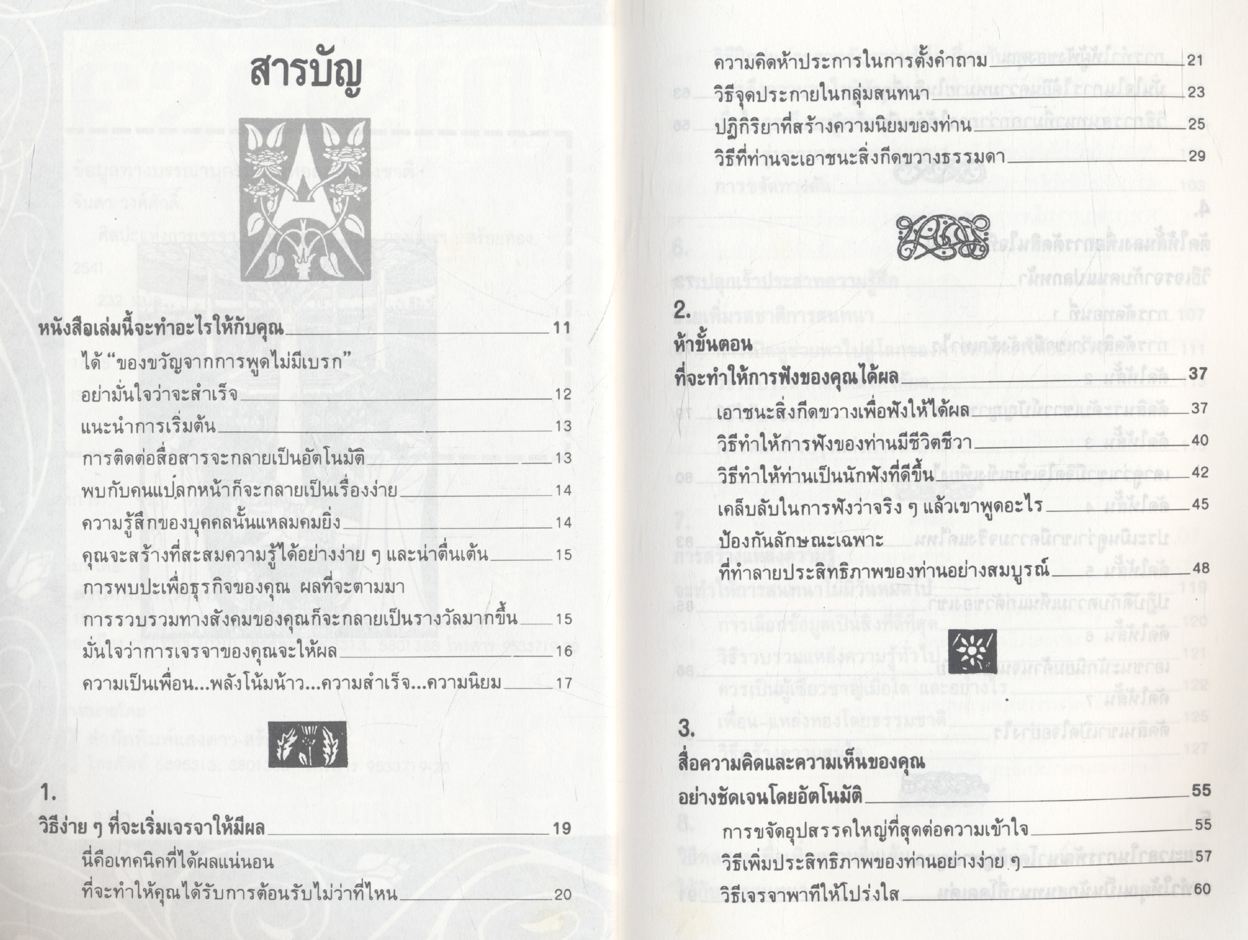 สารบัญ
หนังสือเล่มนี้จะทำอะไรให้กับคุณ 11
ได้ “ของขวัญจากการพูดไม่มีเบรก”
อย่ามั่นใจว่าจะสำเร็จ 12
แนะนำการเริ่มต้น 13
การติดต่อสื่อสารจะกลายเป็นอัตโนมัติ 13
พบกับคนแปลกหน้าก็จะกลายเป็นเรื่องง่าย 14
ความรู้สึกของบุคคลนั้นแหลมคมยิ่ง 14
คุณจะสร้างที่สะสมความรู้ได้อย่างง่าย ๆ และน่าตื่นเต้น 15
การพบปะเพื่อธุรกิจของคุณ ผลที่จะตามมา
การรวบรวมทางสังคมของคุณก็จะกลายเป็นรางวัลมากขึ้น 15
มั่นใจว่าการเจรจาของคุณจะให้ผล 16
ความเป็นเพื่อน...พลังโน้มน้าว...ความสำเร็จ...ความนิยม 17
1.
วิธีง่าย ๆ ที่จะเริ่มเจรจาให้มีผล 19
นี่คือเทคนิคที่ได้ผลแน่นอน
ที่จะทำให้คุณได้รับการต้อนรับไม่ว่าที่ไหน 20
ความคิดห้าประการในการตั้งคำถาม 21
วิธีจุดประกายในกลุ่มสนทนา 23
ปฏิกิริยาที่สร้างความนิยมของท่าน 25
วิธีที่ท่านจะเอาชนะสิ่งกีดขวางธรรมดา 29
2.
ห้าขั้นตอน
ที่จะทำให้การฟังของคุณได้ผล 37
เอาชนะสิ่งกีดขวางเพื่อฟังให้ได้ผล 37
วิธีทำให้การฟังของท่านมีชีวิตชีวา 40
วิธีทำให้ท่านเป็นนักฟังที่ดีขึ้น 42
เคล็บลับในการฟังว่าจริง ๆ แล้วเขาพูดอะไร 45
ป้องกันลักษณะเฉพาะ
ที่ทำลายประสิทธิภาพของท่านอย่างสมบูรณ์ 48
3.
สื่อความคิดและความเห็นของคุณ
อย่างชัดเจนโดยอัตโนมัติ 55
การขจัดอุปสรรคใหญ่ที่สุดต่อความเข้าใจ 55
วิธีเพิ่มประสิทธิภาพของท่านอย่างง่าย ๆ 57
วิธีเจรจาพาทีให้โปร่งใส 60